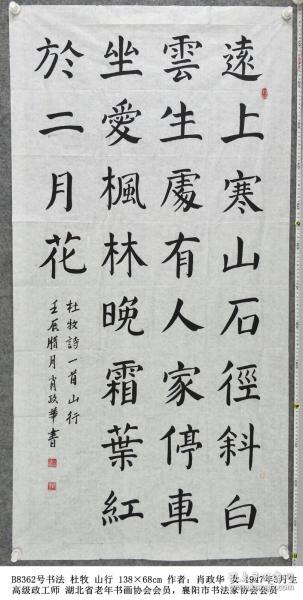 遠上寒山石徑斜白
雲生處有人家停車
坐愛楓林晚霜葉紅
於二月花
杜牧詩一首山行
壬辰腊月肖政華書
B8362号书法 杜牧 山行 138×68cm 作者：肖政华 女 1947年8月生
高级政工师 湖北省老年书画协会会员，襄阳市书法家协会会员